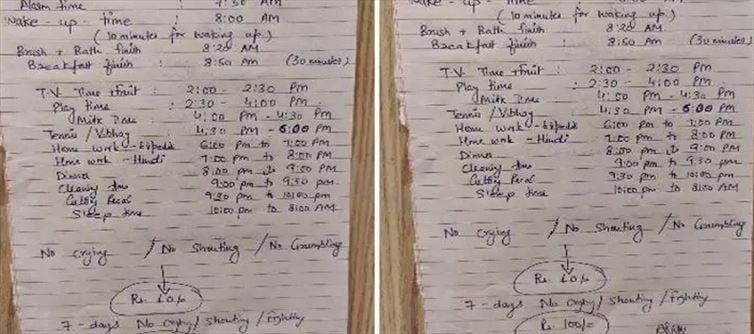 Alarm time : 7:50 AM
Wake-up time : 8:00 AM
(10 minutes for waking up)
Brush + Bath finish : 8:20 AM
Breakfast finish : 8:50 AM (30 minutes)
T.V. Time + fruit : 2:00 - 2:30 Pm
Play time : 2:30 - 4:00 Pm
Milk Time : 4:00 Pm - 4:30 Pm
Tennis / : 4:30 PM - 6:00 Pm
Home work - : 6:00 pm to 7:00 Pm
Home work - Hindi : 7:00 pm to 8:00 PM
Dinner : 8:00 pm to 9:00 PM
Cleaning time 9:00 pm to 9:30 pm
9:30 pm to 10:00 pm
Sleep time 10:00 pm to 8:00 AM
No crying / No Shouting / No Grumbling
Rs. 10/-
7-days No crying / shouting / fighting
Wake-up time : 8:00 AM
(10 minutes for waking up)
Brush + Bath finish : 8:20 AM
Breakfast finish : 8:50 AM (30 minutes)
T.V. Time + fruit : 2:00 - 2:30 Pm
Play time : 2:30 - 4:00 Pm
Milk Time : 4:00 Pm - 4:30 Pm
Tennis / : 4:30 PM - 6:00 PM
Home work - 6:00 pm to 7:00 Pm
Home work - Hindi 7:00 pm to 8:00 PM
Dinner 8:00 pm to 9:00 PM
Cleaning time 9:00 pm to 9:30 pm
9:30 pm to 10:00 pm
Sleep time 10:00 pm to 8:00 AM
No crying / No Shouting / No Grumbling
Rs. 10/-
7-days No crying / shouting / fighting
Rs. 100/-